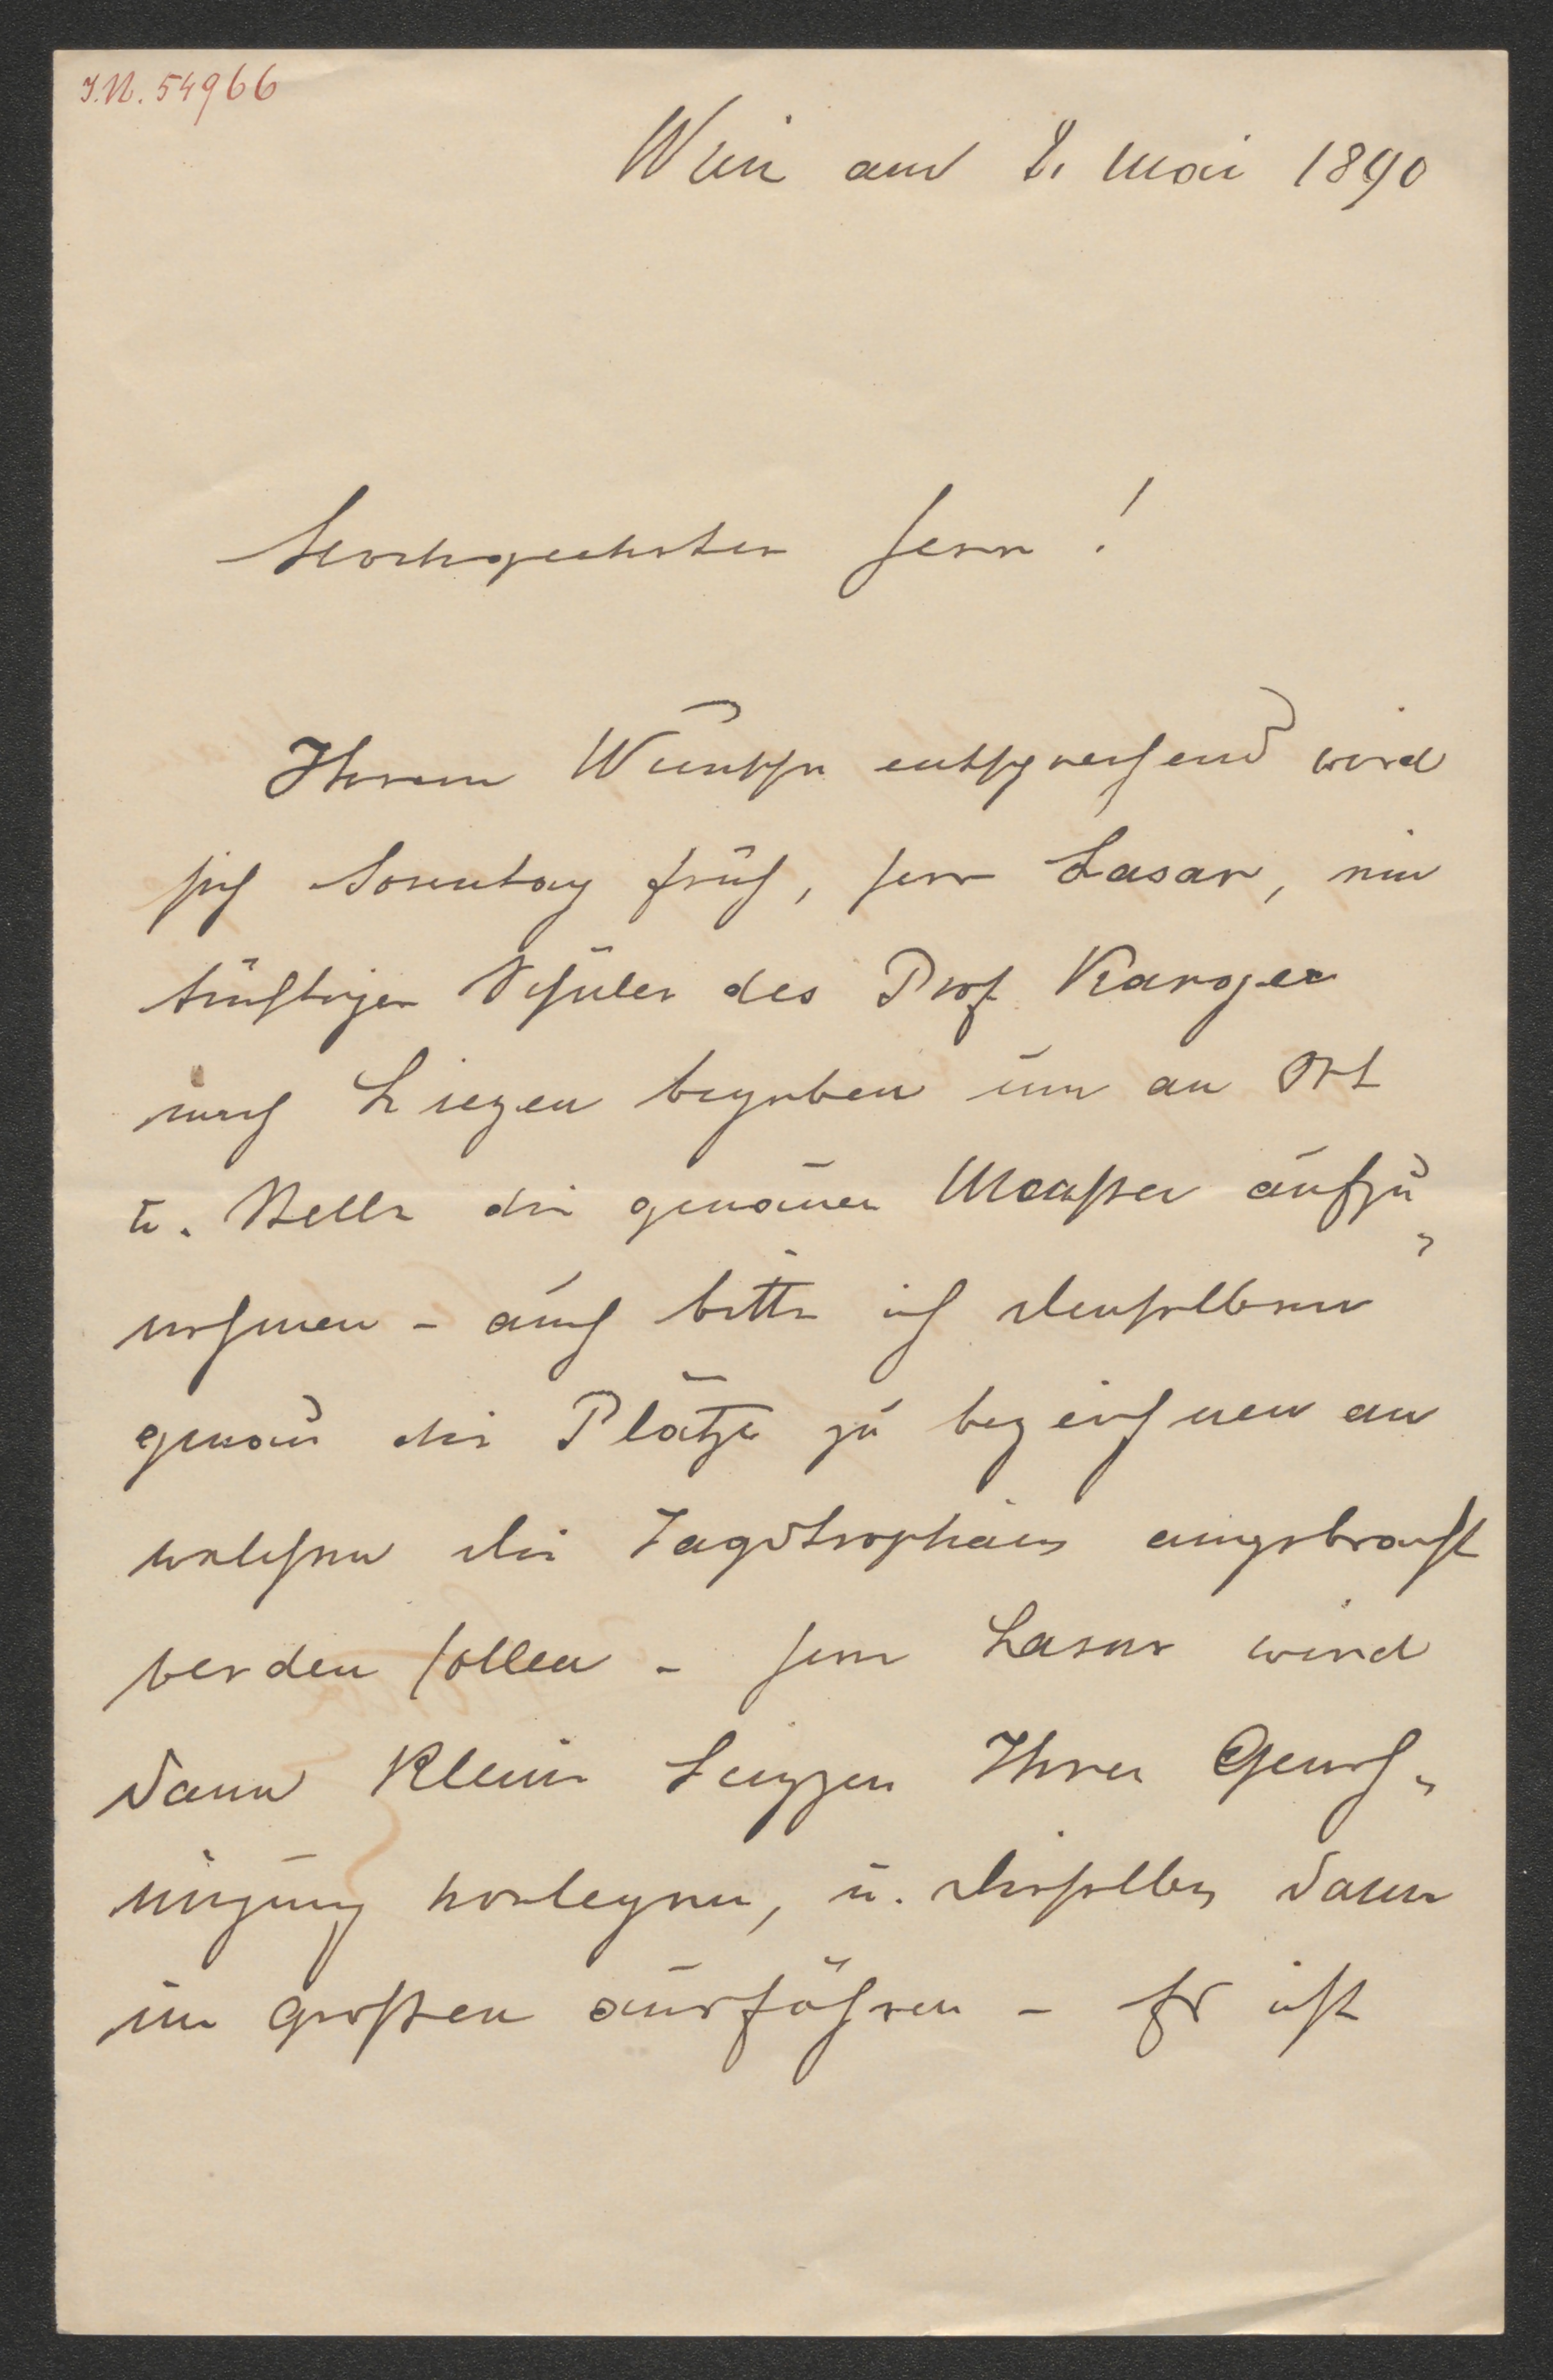 I.N. 54966
Wien am 8. Mai 1890
Hochgeehrter Herr!
Ihrem Wunsche entsprechend wird
sich Sonntag früh, Herr Lasar, ein
tüchtiger Schüler des Prof Karger
nach Liezen begeben um an Ort
u. Stelle die genauen Maasse aufzu„
nehmen – auch bitte ich denselben
genau die Plätze zu bezeichnen an
welchen die Jagdtrophäen angebracht
werden sollen – Herr Lasar wird
dann kleine Skizzen Ihrer Geneh„
migung vorlegen, u. dieselben dann
im grossen ausführen – Er ist